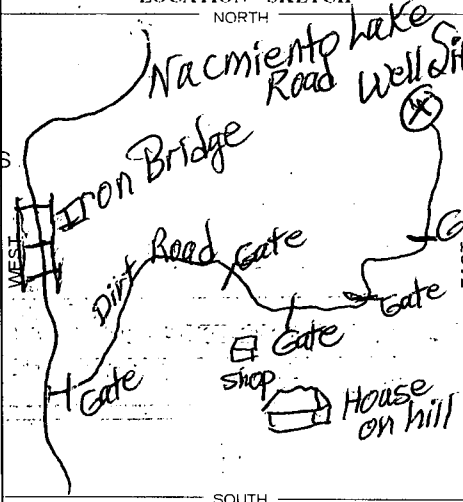 LOCATION SKETCH
NORTH
Nacmiento Lake
Road
Well Sit
Iron Bridge
WEST
Dirt Road
Gate
Gate
Gate
Gate
Shop
House
on hill
SOUTH